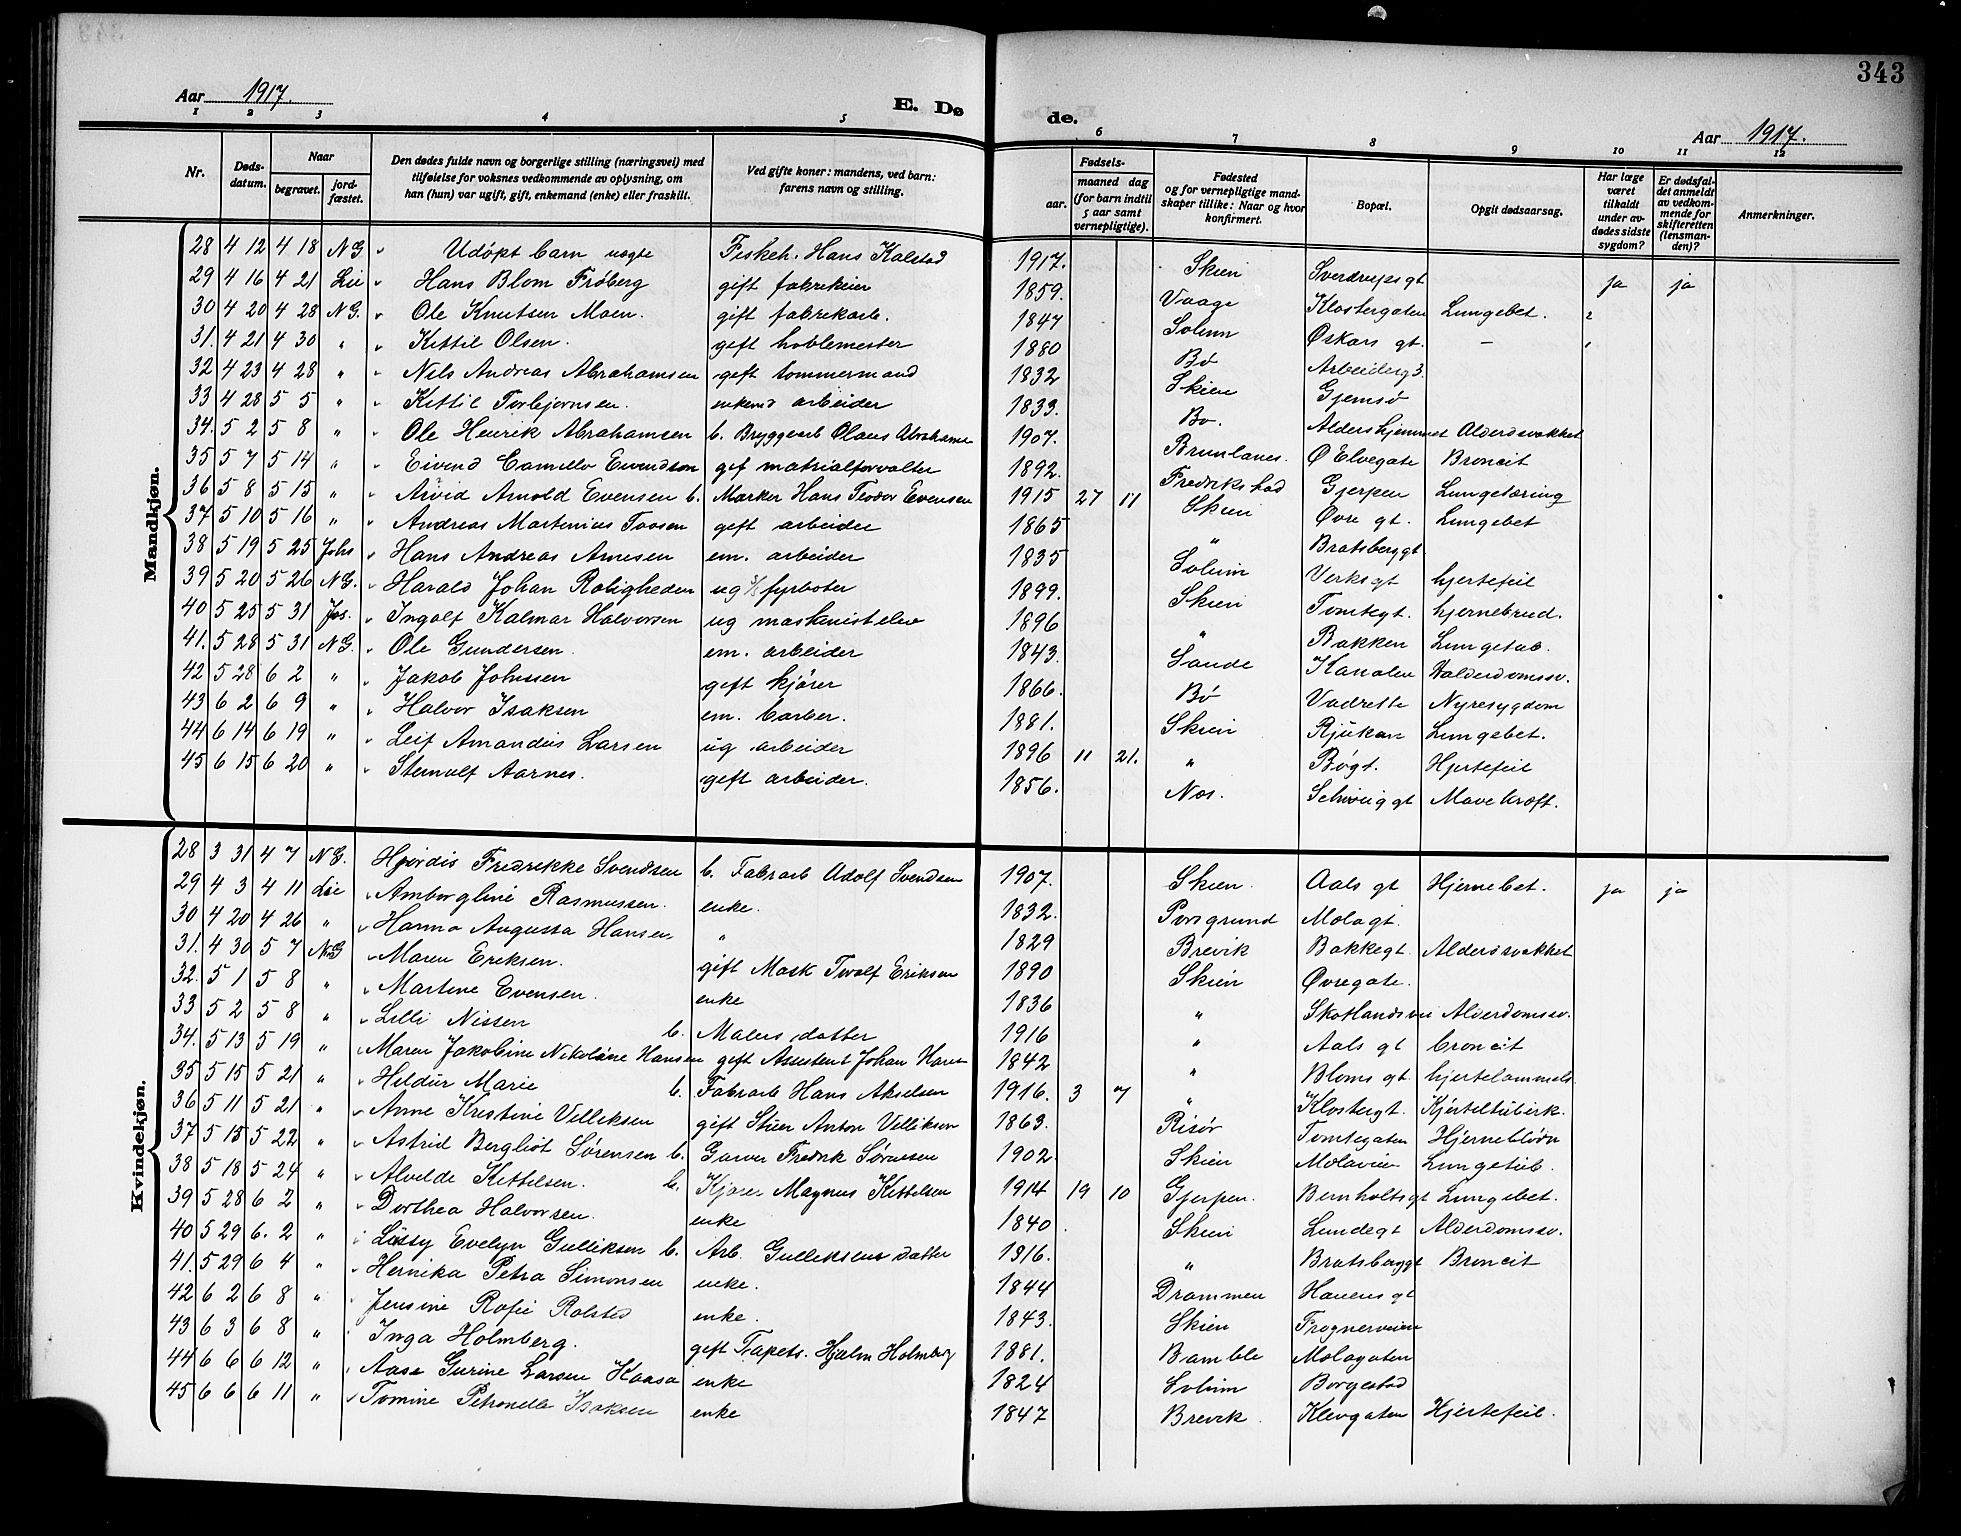 343
Aar 1917.
E. Dø de.
Aar 1917.
1 2 3 4 5 6 7 8 9 10 11 12
Nr.
Døds-datum.
Naar
begravet.
jord-fæstet.
Den dødes fulde navn og borgerlige stilling (næringsvei) med tilføielse for voksnes vedkommende av oplysning, om han (hun) var ugift, gift, enkemand (enke) eller fraskilt.
Ved gifte koner: mandens, ved barn: farens navn og stilling.
Fødsels-
aar.
maaned dag (for barn indtil 5 aar samt vernepligtige).
Fødested og for vernepligtige mandskaper tillike: Naar og hvor konfirmert.
Bopæl.
Opgit dødsaarsag.
Har læge været tilkaldt under avdødes sidste sygdom?
Er dødsfaldet anmeldt av vedkommende for skifteretten (lensmanden)?
Anmerkninger.
Mandkjøn.
28 4 12 4 18 NG " Udøpt barn uegte Fiskeh. Hans Kalstad 1917. Skien Sverdrupsgt
29 4 16 4 21 Lie " Hans Blom Frøberg gift fabrikeier 1859. Vaage Klostergaten Lungebet. ja ja
30 4 20 4 28 NG. " Ole Knutsen Moen. gift fabrekarb. 1847 Solum Øskars gt. –
31. 4 21 4 30 " " Kittil Olsen. gift høvlemester 1880 Bø Arbeiderg 3.
32 4 23 4 28 " " Nils Andreas Abrahamsen gift tommermand 1832 Skien Gjemsø
33 4 28 5 5 " " Kittil Torbjørnsen. enkem arbeider 1833. Bø. Aldershjemmet Alderdsvækket
34. 5 2 5 8 " " Ole Henrik Abrahamsen b. Bryggearb Olaus Abrahams 1907. Brunlanes. Ø Elvegate Broncit
35 5 7 5 14 " " Eivend Camello Eivendson gif matrialforvalter 1892. Fredrikstad Gjerpen Lungetæring
36 5 8 5 15 " " Arvid Arnold Evensen b. Marker Hans Teodor Evensen 1915 27 11 Skien Øvre gt. Lungebet
37 5 10 5 16 " " Andreas Martinius Toosen gift arbeider 1865 " Bratsbergt
38 5 19 5 25 Johs " Hans Andreas Arnesen em. arbeider 1835 Solum Verksgt hjertefeil
39 5 20 5 26 NG. " Harald Johan Roligheden ug fyrbøter 1899. Skien Tomtegt. hjernebrud.
40 5 25 5 31 Jos. " Ingolf Kalmar Halvorsen ug maskinistelev 1896 " Bakken Lungetub.
41. 5 28 5 31 NG. " Ole Gundersen. em. arbeider 1843. Sande Kanalen Halderdomssv.
42 5 28 6 2 " " Jakob Johnsen gift kjører 1866. Bø Vadrette Nyresygdom
43 6 2 6 9 " " Halvor Isaksen em. barber. 1881. Skien Rjukan Lungebet.
44 6 14 6 19 " " Leif Amandus Larsen ug arbeider 1896 11 21. " Bøgt. Hjertefeil
45 6 15 6 20 " " Stenulf Aarnes. gift arbeider. 1856. Nes. Schweiggt Mavekræft.
Kvindekjøn.
28 3 31 4 7 NG. Hjørdis Fredrikke Svendsen b. Fabrarb Adolf Svendsen 1907. Skien. Aals gt Hjernebet. ja ja
29 4 3 4 11 Lie " Amborgline Rasmussen. enke. 1832. Porsgrund Molagt.
30 4 20 4 26 " " Hanna Augusta Hansen " 1829 Brevik Bakkegt. Alderdsvækket
31. 4 30 5 7 NG " Maren Eriksen. gift Mask Twolf Eriksen 1890 Skien Øvregate.
32. 5 1 5 8 " " Martine Evensen. enke 1836 " Skotlandsvei Alderdomssv.
33 5 2 5 8 " " Lilli Nissen b. Malers datter 1916 " Aals gt broncit
34. 5 13 5 19 " " Maren Jakobine Nikoline Hansen gift Assestent Johan Hansen 1842 " Bloms gt. hjertelammels.
35 5 15 5 21 " " Hildur Marie b. Fabrarb Hans Akselsen 1916. 3 7 " Klostergt. Kjerteltuberk.
36 5 11 5 21 " " Anne Kristine Velliksen gift Stuer Anton Velliksen 1863. Risør Tomtegaten Hjerneblødn
37 5 15 5 22 " " Astrid Bergliot Sørensen b. Garver Fredrik Sørensen 1902. Skien Molaveien Lungetub.
38 5 18 5 24 " " Alvelde Kittelsen. b. Kjører Magnus Kittelsen 1914 19 10 Gjerpen. Bernholtsgt Lungebet.
39 5 28 6 2 " " Dorthea Halvorsen. enke 1840. Skien Lundegt Alderdomssv.
40 5 29 6. 2 " " Lissy Evelyn Gulliksen b. Arb. Gulliksens datter 1916. " Bratsberggt Broncit
41. 5 29 6 4 " " Hernika Petra Simonsen enke. 1844 Drammen Havens gt
42 6 2 6 8 " " Jensine Rofie Rolsted enke. 1843. Skien Frognerveien
43 6 3 6 8 " " Inga Holmberg. gift Tapets. Hjalm Holmberg 1881. Bamble Molagaten
44 6 6 6 12 " " Aase Gurine Larsen Kaasa enke 1824 Solum Borgestad
45 6 6 6 11 " " Tomine Petronelle Isaksen enke 1847 Brevik. Klevgaten Hjertefeil.